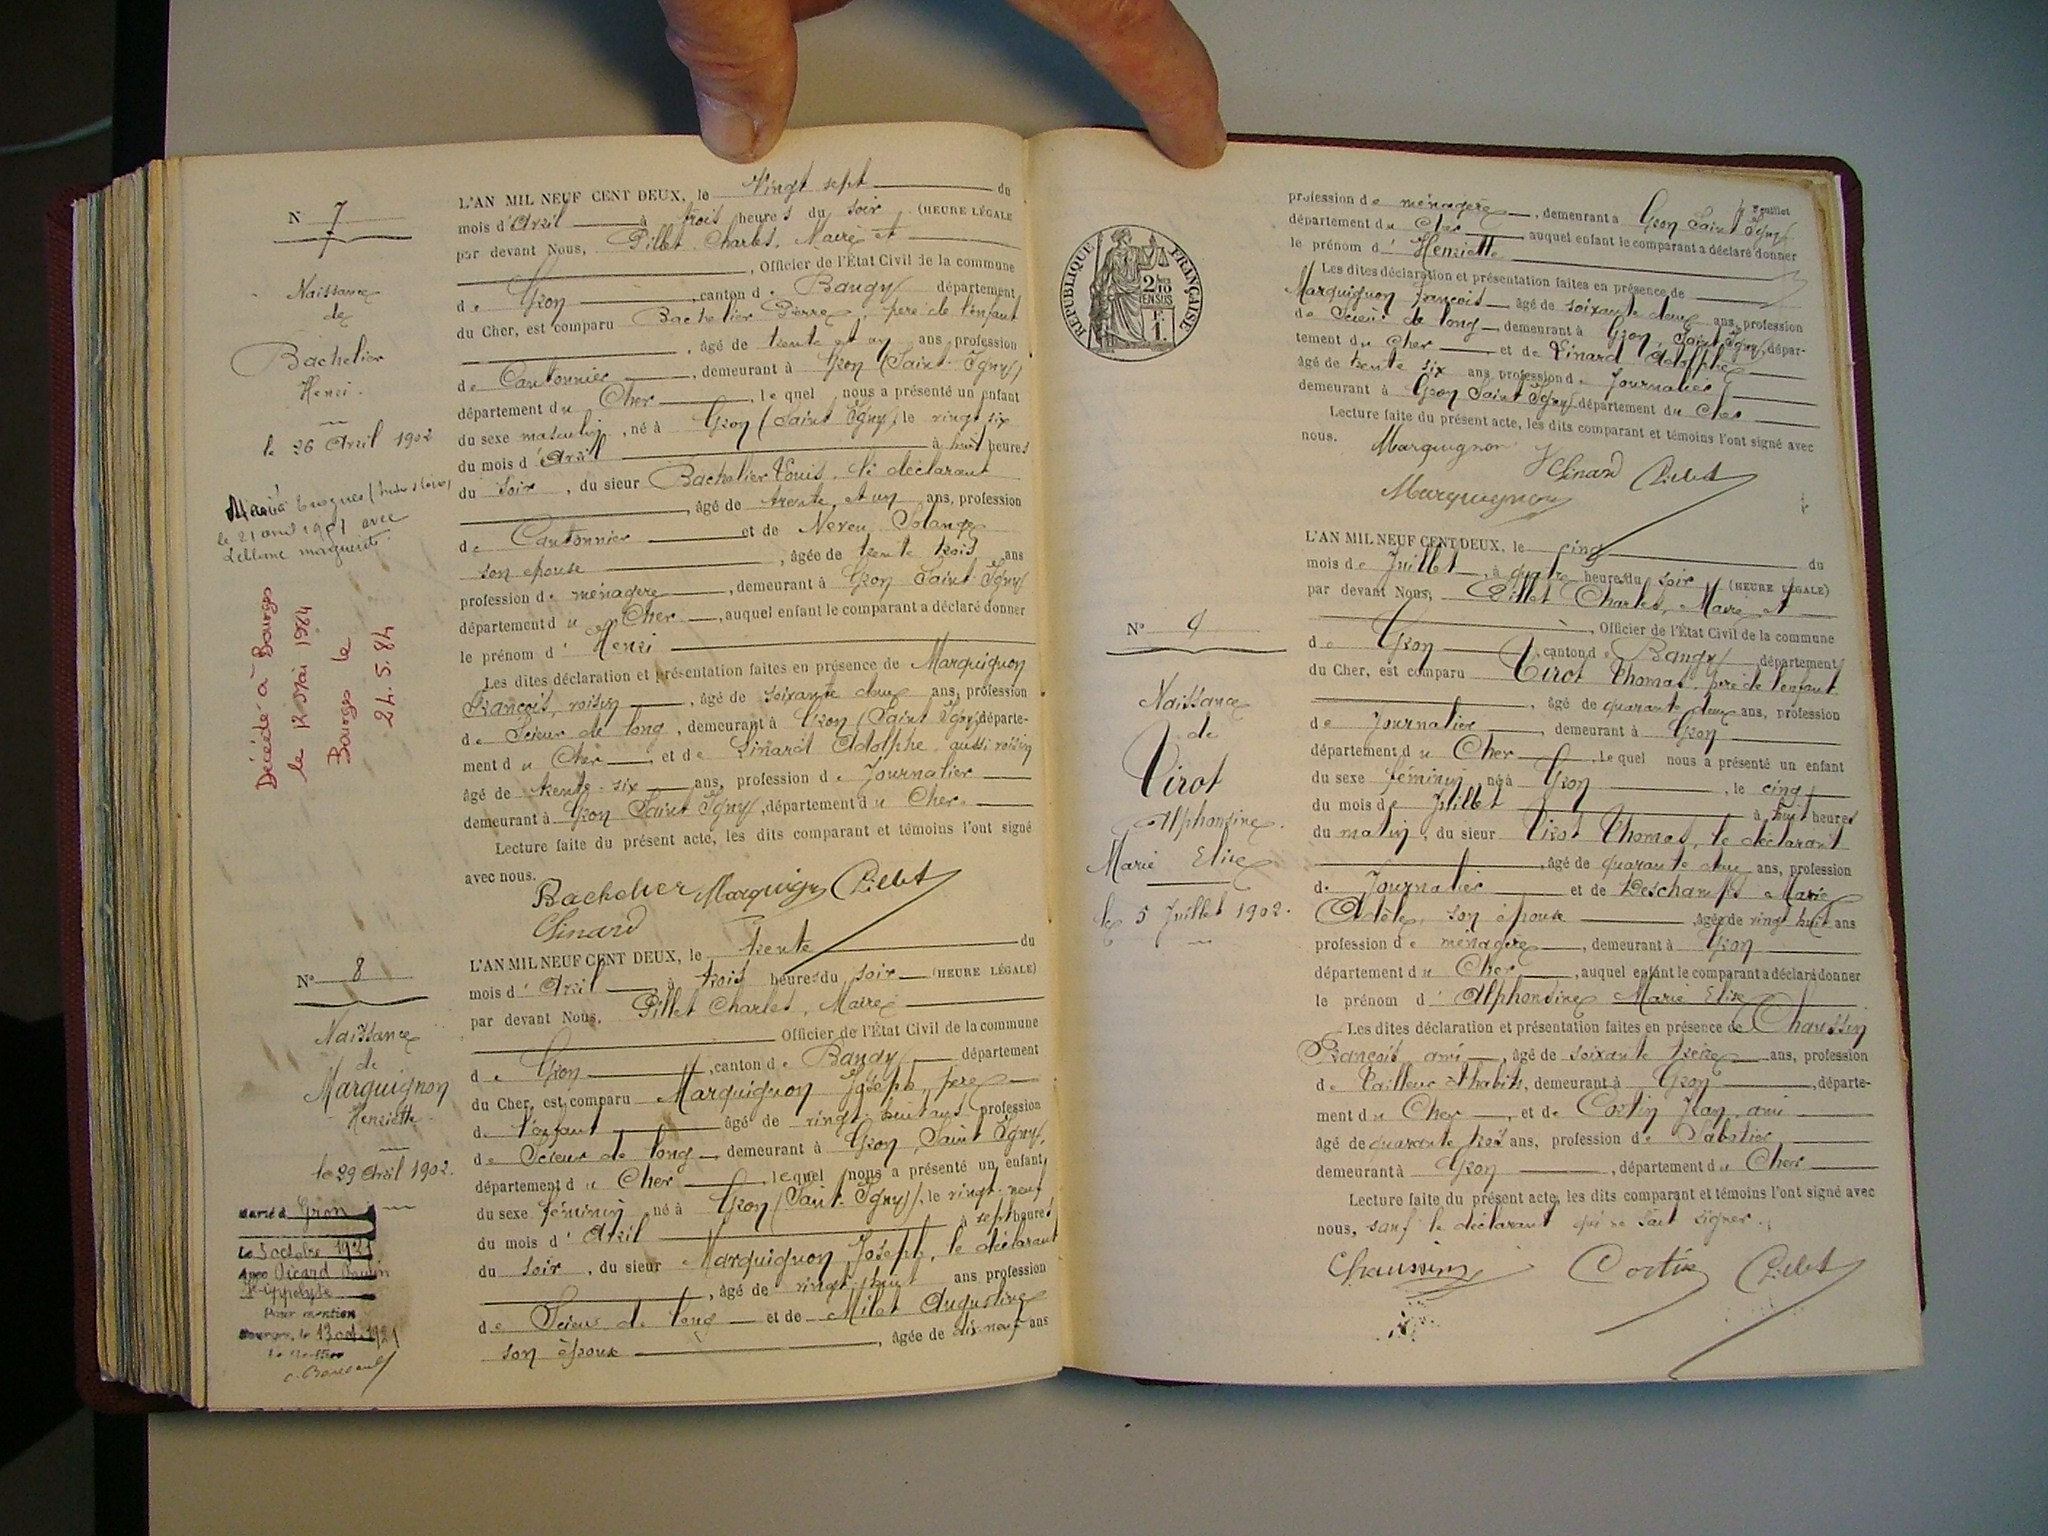 N 7
Naissance
de
Bachelier
Henri.
le 26 Avril 1902
le 21 avril 1951 avec
Leblanc marguerite.
Décédé à Bourges
le 12 Mai 1984
Bourges le
24.5.84
L'AN MIL NEUF CENT DEUX, le Vingt sept du
mois d' Avril à trois heures du soir (HEURE LÉGALE
par devant Nous, Pillet Charles, Maire et
, Officier de l'État Civil de la commune
de Gron , canton de Baugy département
du Cher, est comparu Bachelier Pierre, père de l'enfant
, âgé de trente et un ans profession
de Cantonnier , demeurant à Gron (Saint Igny)
département du Cher , lequel nous a présenté un enfant
du sexe masculin , né à Gron (Saint Igny) le vingt six
du mois d' Avril à huit heures
du soir , du sieur Bachelier Louis, le déclarant
, âgé de trente et un ans, profession
de Cantonnier et de Neveu Solange
son épouse , âgée de trente trois ans
profession de ménagère , demeurant à Gron Saint Igny
département du Cher , auquel enfant le comparant a déclaré donner
le prénom d' Henri
Les dites déclaration et présentation faites en présence de Marquignon
François, voisin , âgé de soixante deux ans, profession
de Scieur de long , demeurant à Gron (Saint Igny) départe-
ment du Cher , et de Linard Adolphe aussi voisin
âgé de trente-six ans, profession de Journalier
demeurant à Gron Saint Igny , département du Cher.
Lecture faite du présent acte, les dits comparant et témoins l'ont signé
avec nous.
Bachelier Marquignon Pillet
Linard
N° 8
Naissance
de
Marquignon
Henriette
le 29 Avril 1902.
Marié à Gron
Le 3 octobre 1921
Avec Picard
Hippolyte
Pour mention
le 13 oct. 1921
L'AN MIL NEUF CENT DEUX, le trente du
mois d' Avril à trois heures du soir (HEURE LÉGALE)
par devant Nous, Pillet Charles, Maire
Officier de l'État Civil de la commune
de Gron , canton de Baugy département
du Cher, est comparu Marquignon Joseph, père
de l'enfant âgé de vingt huit ans, profession
de Scieur de long , demeurant à Gron, Saint Igny,
département du Cher , lequel nous a présenté un enfant
du sexe féminin né à Gron (Saint Igny), le vingt-neuf
du mois d' Avril à sept heures
du soir , du sieur Marquignon Joseph, le déclarant
, âgé de vingt huit ans profession
de Scieur de long et de Milet Augustine
son épouse , âgée de dix-neuf ans
Feuillet
profession de ménagère , demeurant à Gron Saint Igny
département du Cher auquel enfant le comparant a déclaré donner
le prénom d' Henriette
Les dites déclaration et présentation faites en présence de
Marquignon François âgé de soixante deux ans, profession
de Scieur de long , demeurant à Gron, Saint Igny, dépar-
tement du Cher et de Linard Adolphe
âgé de trente six ans profession de Journalier
demeurant à Gron Saint Igny département du Cher
Lecture faite du présent acte, les dits comparant et témoins l'ont signé avec
nous.
Marquignon Linard Pillet
Marquignon
RÉPUBLIQUE FRANÇAISE
2/10
EN SUS
1 F.
N° 9
Naissance
de
Virot
Alphonsine.
Marie Elise
le 5 Juillet 1902.
L'AN MIL NEUF CENT DEUX, le cinq du
mois de Juillet , à quatre heures du soir (HEURE LÉGALE)
par devant Nous, Pillet Charles, Maire et
, Officier de l'État Civil de la commune
de Gron , canton de Baugy département
du Cher, est comparu Virot Thomas, père de l'enfant
, âgé de quarante deux ans, profession
de Journalier , demeurant à Gron
département du Cher . Lequel nous a présenté un enfant
du sexe féminin, né à Gron , le cinq
du mois de Juillet à huit heures
du matin , du sieur Virot Thomas, le déclarant
, âgé de quarante deux ans, profession
de Journalier et de Deschamps Marie
Adèle, son épouse , âgée de vingt huit ans
profession de ménagère , demeurant à Gron
département du Cher , auquel enfant le comparant a déclaré donner
le prénom d' Alphonsine Marie Elise
Les dites déclaration et présentation faites en présence de Chaussin
François, ami , âgé de soixante treize ans, profession
de Tailleur d'habits, demeurant à Gron , départe-
ment du Cher , et de Cortin Jean, ami
âgé de quarante trois ans, profession de Sabotier
demeurant à Gron , département du Cher
Lecture faite du présent acte, les dits comparant et témoins l'ont signé avec
nous, sauf le déclarant qui ne sait signer.
Chaussin Cortin Pillet